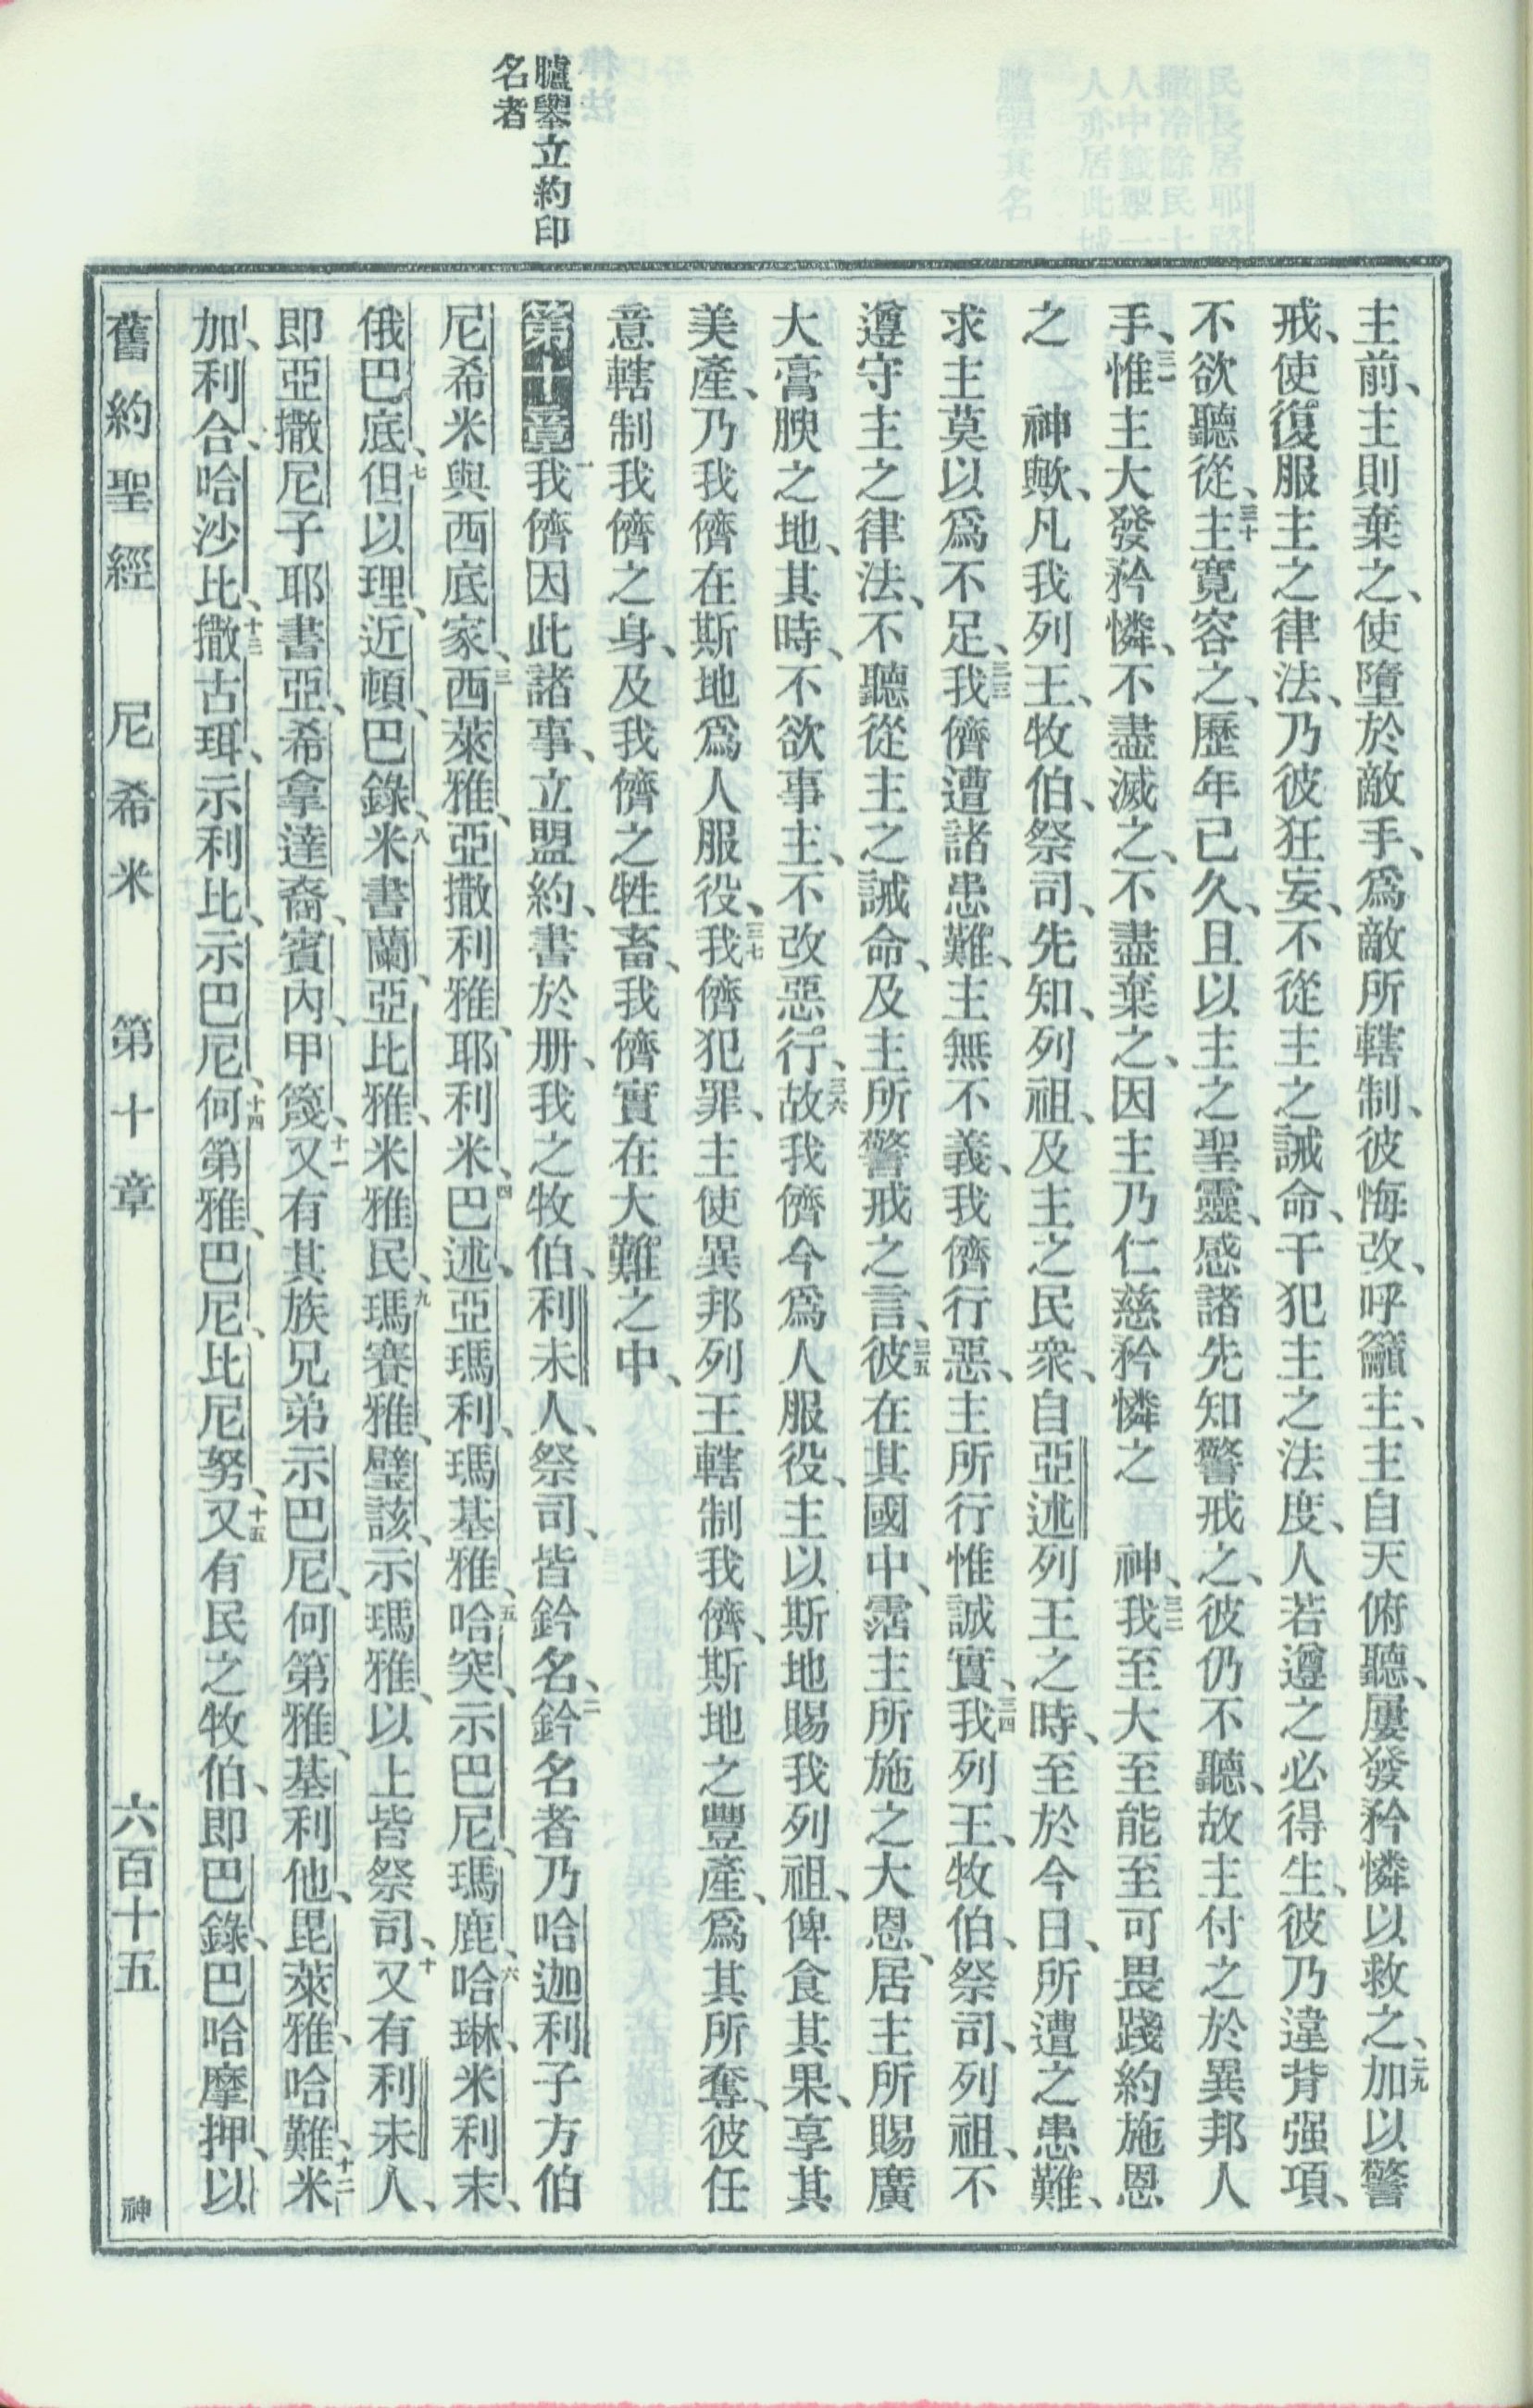 臚舉立約印
名者
主前、主則棄之、使墮於敵手、爲敵所轄制、彼悔改、呼籲主、主自天俯聽、屢發矜憐以救之、二九加以警
戒、使復服主之律法、乃彼狂妄、不從主之誡命、干犯主之法度、人若遵之必得生、彼乃違背强項、
不欲聽從、三十主寬容之、歷年已久、且以主之聖靈、感諸先知警戒之、彼仍不聽、故主付之於異邦人
手、三一惟主大發矜憐、不盡滅之、不盡棄之、因主乃仁慈矜憐之　神、三二我至大至能至可畏踐約施恩
之　神歟、凡我列王、牧伯、祭司、先知、列祖、及主之民衆、自亞述列王之時、至於今日、所遭之患難、
求主莫以爲不足、三三我儕遭諸患難、主無不義、我儕行惡、主所行惟誠實、三四我列王、牧伯、祭司、列祖、不
遵守主之律法、不聽從主之誡命、及主所警戒之言、三五彼在其國中、霑主所施之大恩、居主所賜廣
大膏腴之地、其時、不欲事主、不改惡行、三六故我儕今爲人服役、主以斯地賜我列祖、俾食其果、享其
美產、乃我儕在斯地爲人服役、三七我儕犯罪、主使異邦列王轄制我儕、斯地之豐產、爲其所奪、彼任
意轄制我儕之身、及我儕之牲畜、我儕實在大難之中、
第十章　一我儕因此諸事、立盟約、書於册、我之牧伯、利未人、祭司、皆鈐名、二鈐名者乃哈迦利子方伯
尼希米與西底家、三西萊雅、亞撒利雅、耶利米、四巴述、亞瑪利、瑪基雅、五哈突、示巴尼、瑪鹿、六哈琳、米利末、
俄巴底、七但以理、近頓、巴錄、八米書蘭、亞比雅、米雅民、九瑪賽雅、璧該、示瑪雅、以上皆祭司、十又有利未人、
即亞撒尼子耶書亞、希拿達裔、賓內、甲篾、十一又有其族兄弟示巴尼、何第雅、基利他、毘萊雅、哈難、十二米
加、利合、哈沙比、十三撒古珥、示利比、示巴尼、十四何第雅、巴尼、比尼努、十五又有民之牧伯、即巴錄、巴哈摩押、以
舊約聖經　尼希米　第十章　六百十五　神